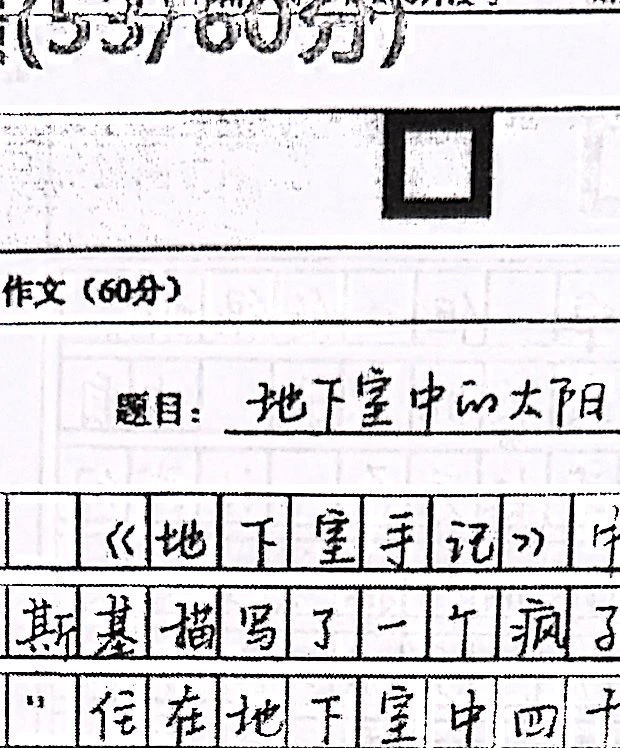 (53/60分)
作文（60分）
题目：地下室中的太阳
《地下室手记》中
斯基描写了一个疯子
"住在地下室中四十